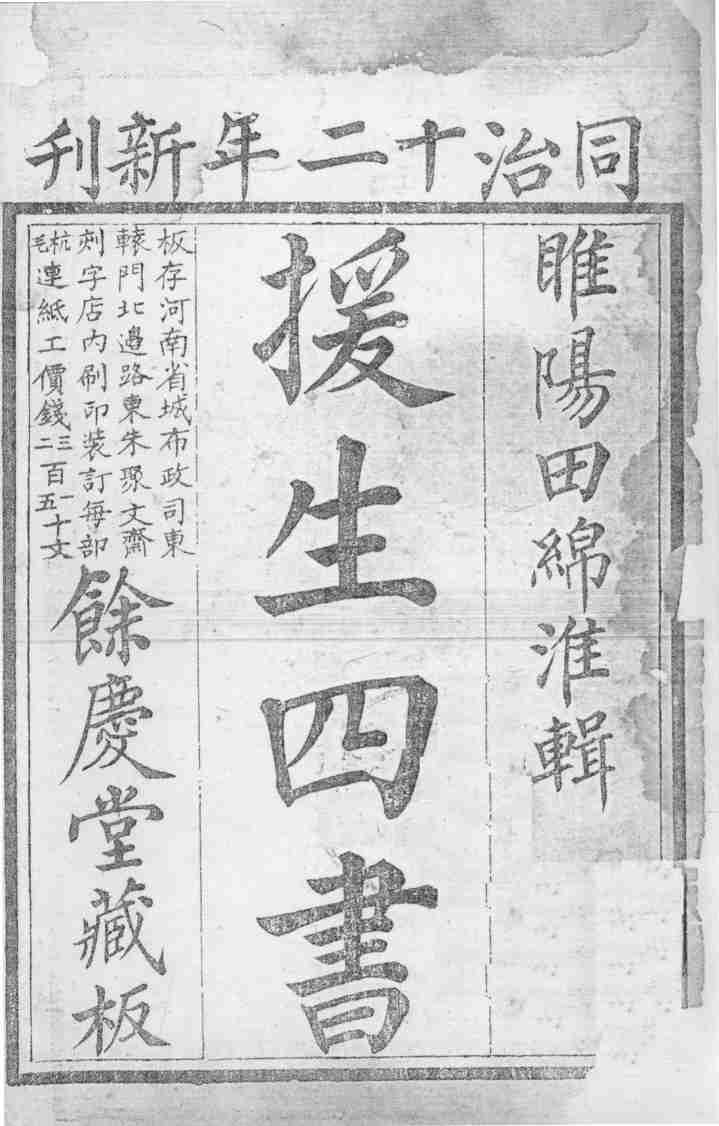 同治十二年新刊
睢陽田綿淮輯
援生四書
板存河南省城布政司東
轅門北邉路東朱聚文齋
刻字店内刷印装訂每部
杭毛連紙工價錢三二百一五十文
餘慶堂藏板